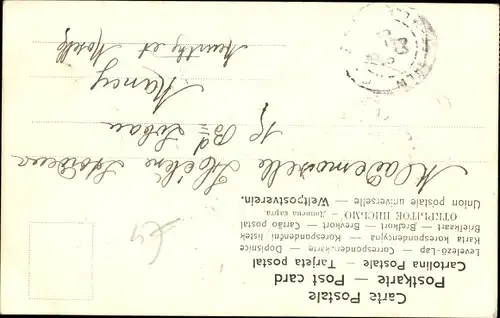 Carte Postale
Postkarte — Post card
Cartolina Postale — Tarjeta postal
Levelező-Lap — Correspondenzkarte — Dopisnice
Karta korespondencyjna — Korespondenční listek
Briefkaart — Brefkort — Brevkort — Carão postal
ОТКРЫТОЕ ПИСЬМО. — Дописна карта
Union postale universelle — Weltpostverein.
Mademoiselle Hélène
Bd Lobau
Nancy
Meurthe et Moselle